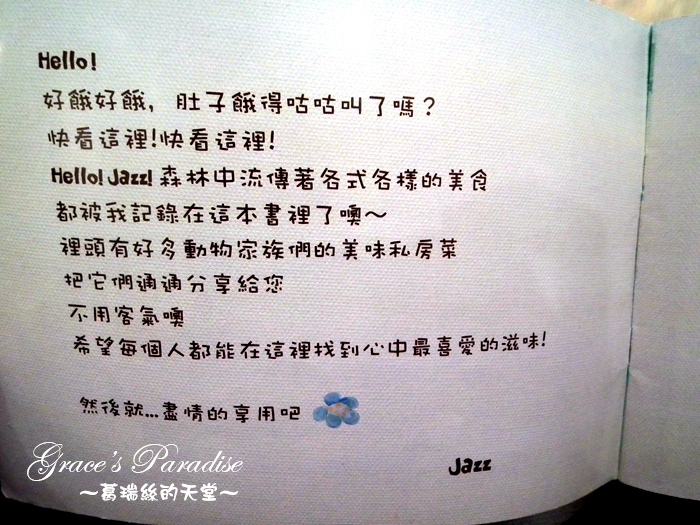 Hello!
好餓好餓，肚子餓得咕咕叫了嗎？
快看這裡!快看這裡!
Hello! Jazz! 森林中流傳著各式各樣的美食
都被我記錄在這本書裡了噢～
裡頭有好多動物家族們的美味私房菜
把它們通通分享給您
不用客氣噢
希望每個人都能在這裡找到心中最喜愛的滋味!
然後就...盡情的享用吧
Jazz
Grace's Paradise
～葛瑞絲的天堂～